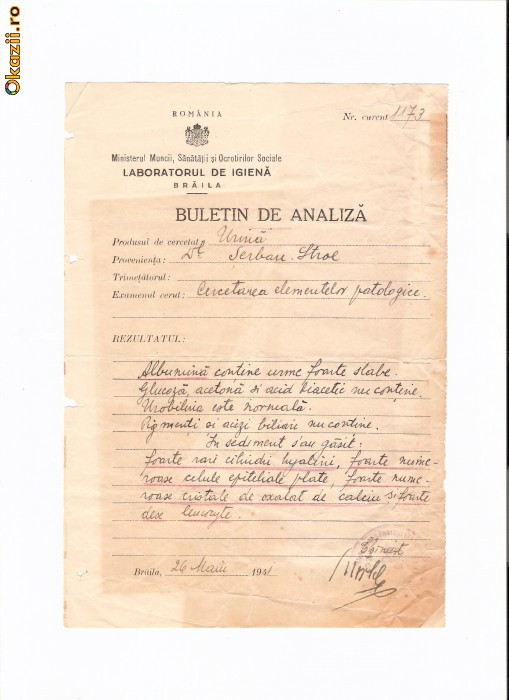 Okazii.ro
ROMÂNIA
Nr. curent 1173
Ministerul Muncii, Sănătății și Ocrotirilor Sociale
LABORATORUL DE IGIENĂ
BRĂILA
BULETIN DE ANALIZĂ
Produsul de cercetat, Urină
Proveniența: Dl Serban Stroe
Trimețătorul:
Examenul cerut: Cercetarea elementelor patologice.
REZULTATUL:
Albumină contine urme foarte slabe.
Glucoză, acetonă si acid diacetic nu contine.
Urobilina este normală.
Pigmenti si acizi biliari nu contine.
In sediment s'au găsit:
foarte rari cilindri hyalini, foarte nume-
roase celule epiteliale plate, foarte nume-
roase cristale de oxalat de calciu si foarte
dese leucocyte.
Brăila, 26 Maiu 1941